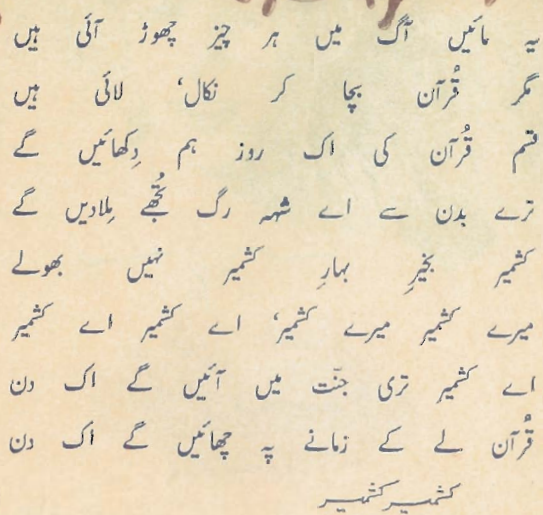 یہ مائیں آگ میں ہر چیز چھوڑ آئی ہیں
مگر قُرآن بچا کر نکال، لائی ہیں
قسم قُرآن کی اک روز ہم دِکھائیں گے
ترے بدن سے اے شہہ رگ تُجھے مِلادیں گے
کشمیر بخیرِ بہارِ کشمیر نہیں بھولے
میرے کشمیر میرے کشمیر، اے کشمیر اے کشمیر
اے کشمیر تری جنّت میں آئیں گے اک دن
قُرآن لے کے زمانے پہ چھائیں گے اک دن
کشمیر کشمیر